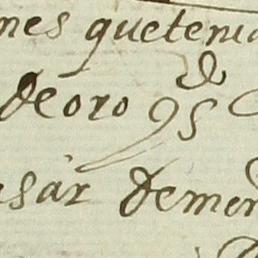 nes quetenia
deoro
esar deme